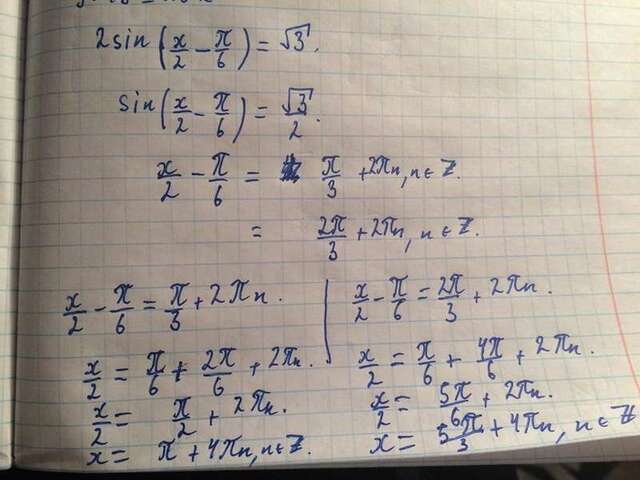 2sin(x/2 − π/6) = √3.
sin(x/2 − π/6) = √3/2.
x/2 − π/6 = π/3 + 2πn, n ∈ Z.
= 2π/3 + 2πn, n ∈ Z.
x/2 − π/6 = π/3 + 2πn.
x/2 = π/6 + 2π/6 + 2πn.
x/2 = π/2 + 2πn.
x = π + 4πn, n ∈ Z.
x/2 − π/6 = 2π/3 + 2πn.
x/2 = π/6 + 4π/6 + 2πn.
x/2 = 5π/6 + 2πn.
x = 5π/3 + 4πn, n ∈ Z